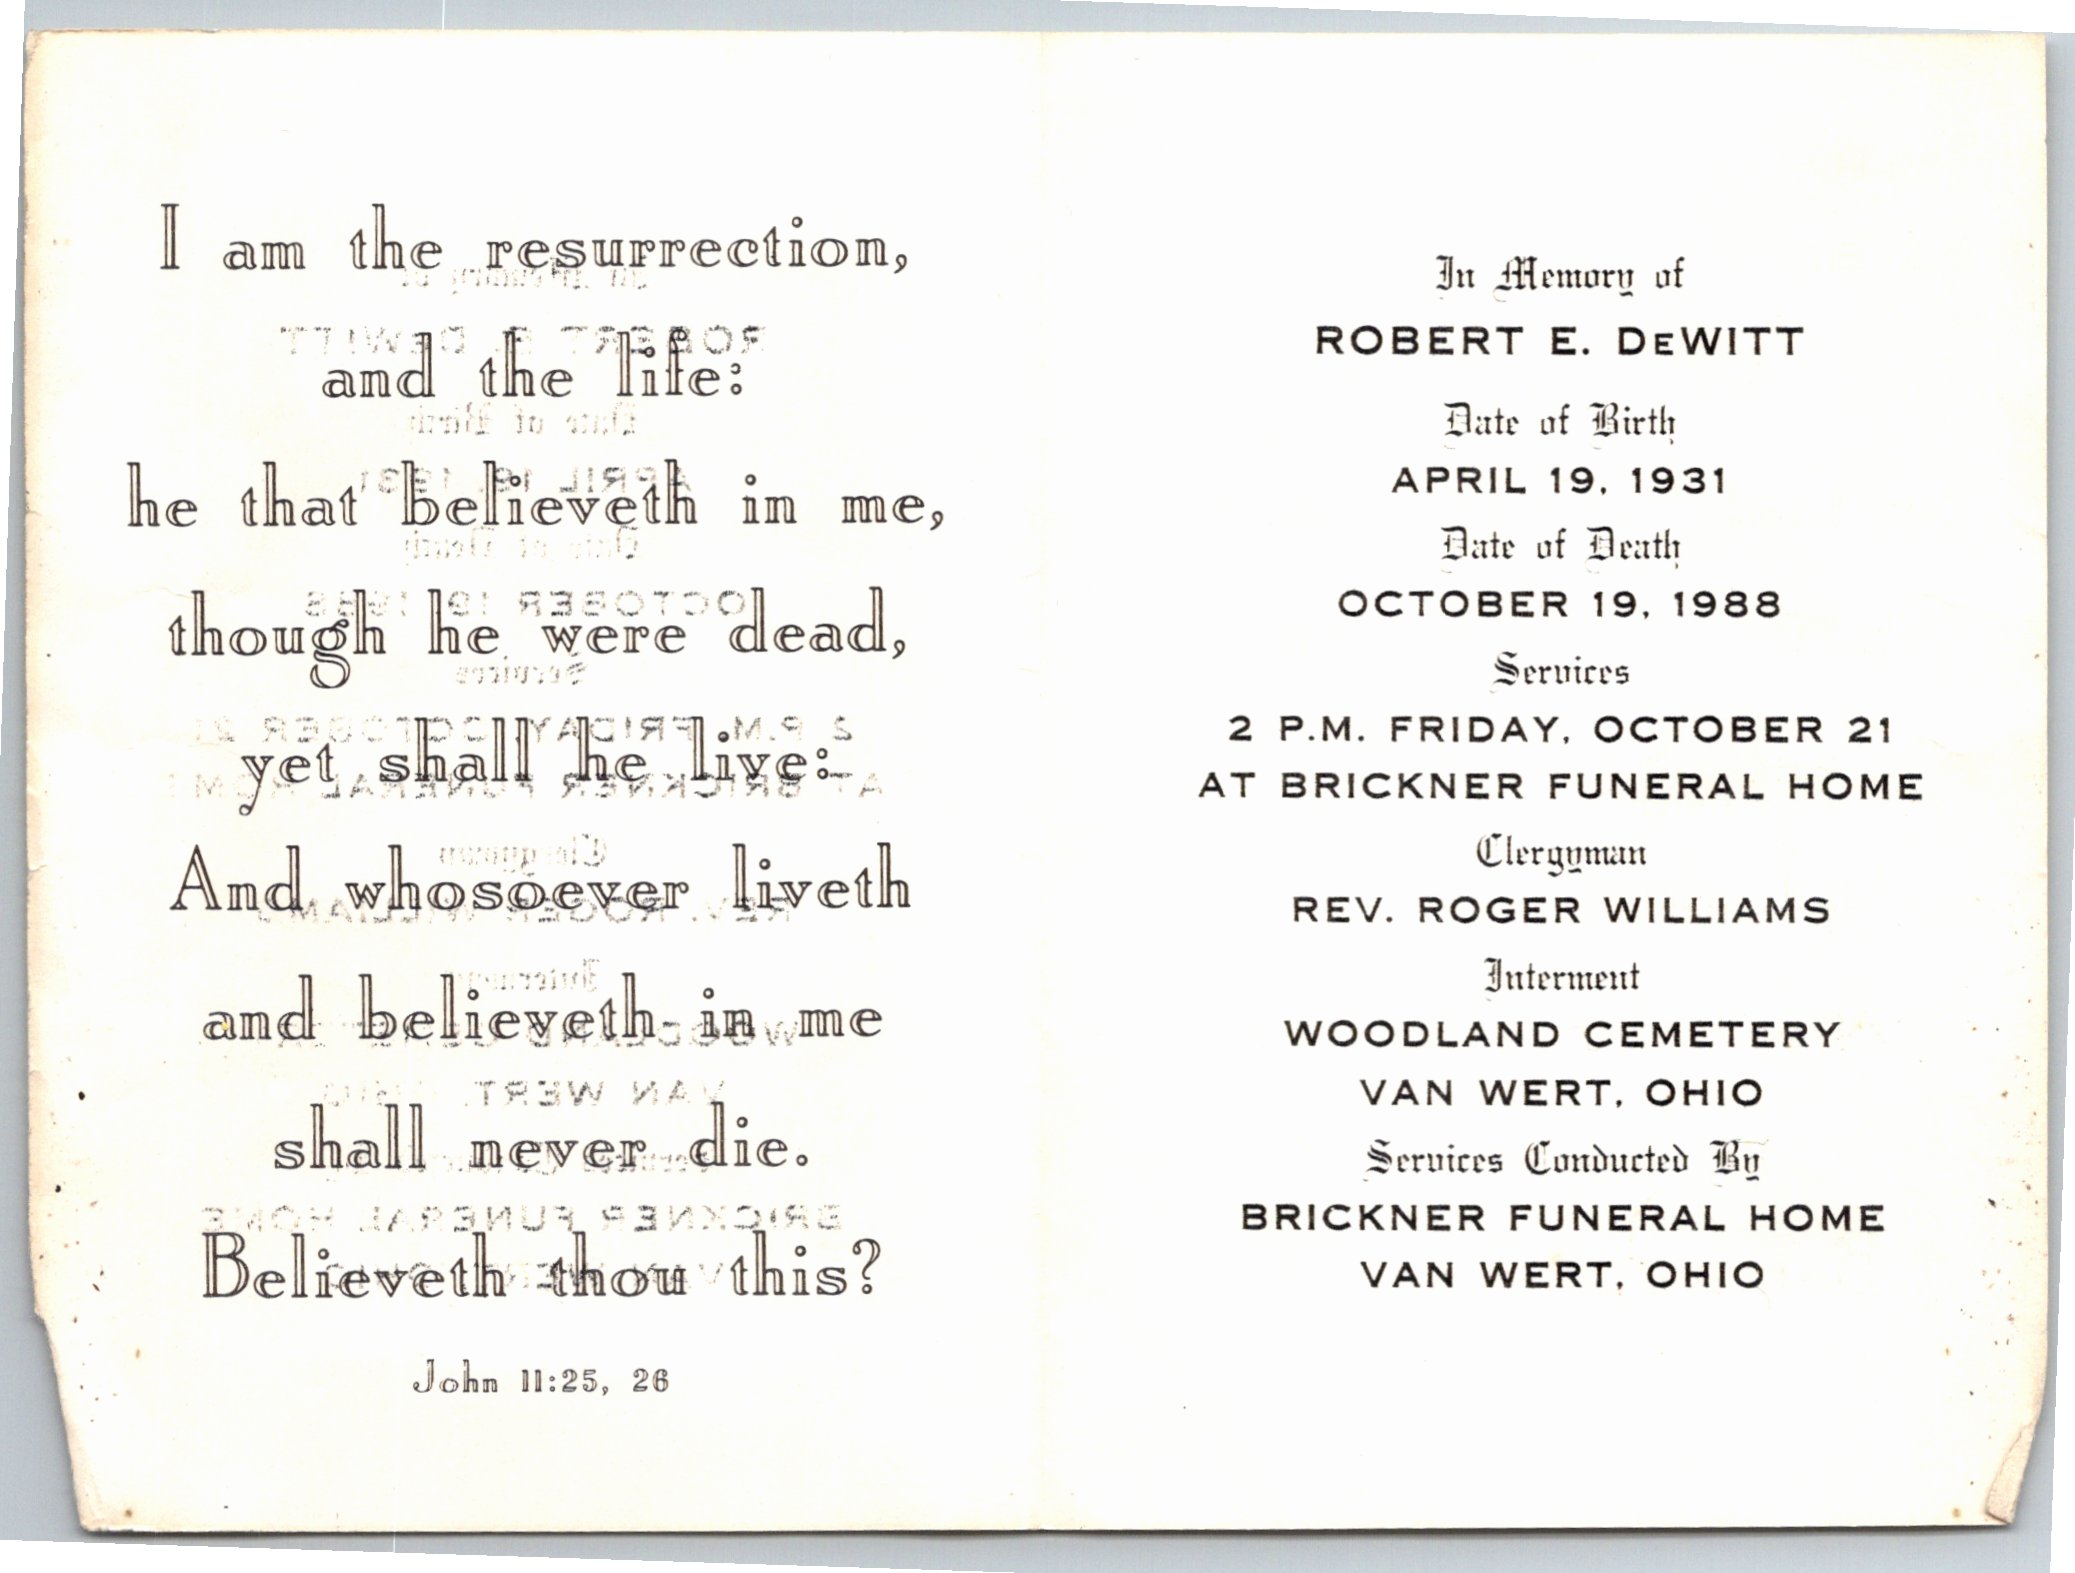 I am the resurrection,
and the life:
he that believeth in me,
though he were dead,
yet shall he live:
And whosoever liveth
and believeth in me
shall never die.
Believeth thou this?
John 11:25, 26
In Memory of
ROBERT E. DeWITT
Date of Birth
APRIL 19, 1931
Date of Death
OCTOBER 19, 1988
Services
2 P.M. FRIDAY, OCTOBER 21
AT BRICKNER FUNERAL HOME
Clergyman
REV. ROGER WILLIAMS
Interment
WOODLAND CEMETERY
VAN WERT, OHIO
Services Conducted By
BRICKNER FUNERAL HOME
VAN WERT, OHIO